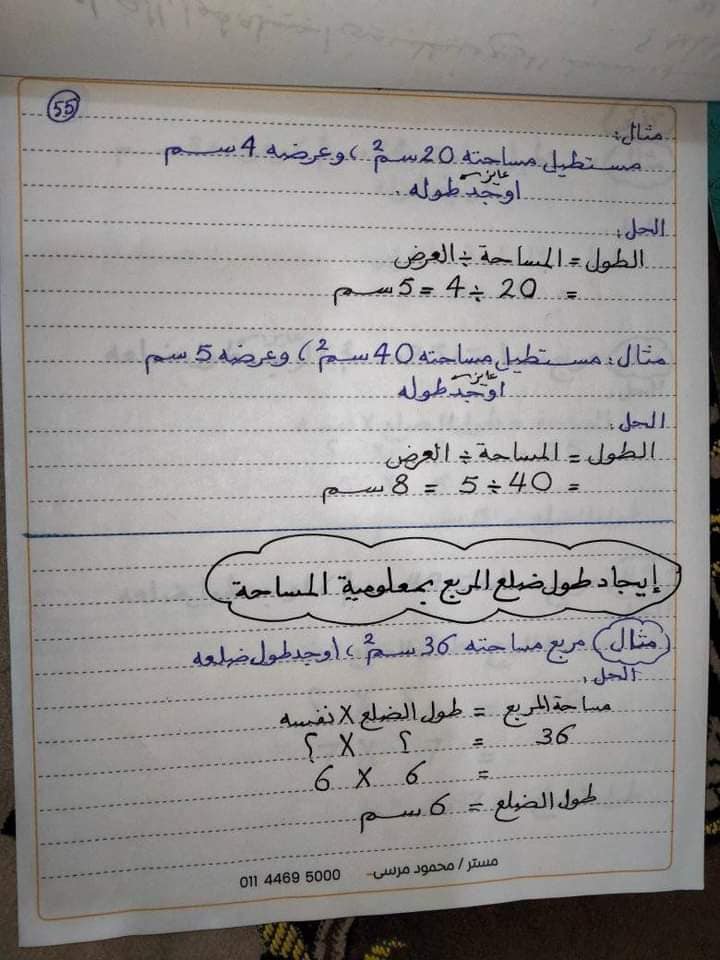 55
مثال:
مستطيل مساحته 20 سم2، وعرضه 4 سم
عايز
اوجد طوله.
الحل:
الطول = المساحة ÷ العرض
= 20 ÷ 4 = 5 سم
مثال: مستطيل مساحته 40 سم2، وعرضه 5 سم
عايز
اوجد طوله
الحل:
الطول = المساحة ÷ العرض
= 40 ÷ 5 = 8 سم
إيجاد طول ضلع المربع بمعلومية المساحة
مثال مربع مساحته 36 سم2، اوجد طول ضلعه
الحل:
مساحة المربع = طول الضلع X نفسه
36 = ؟ X ؟
= 6 X 6
طول الضلع = 6 سم
مستر / محمود مرسى 011 4469 5000